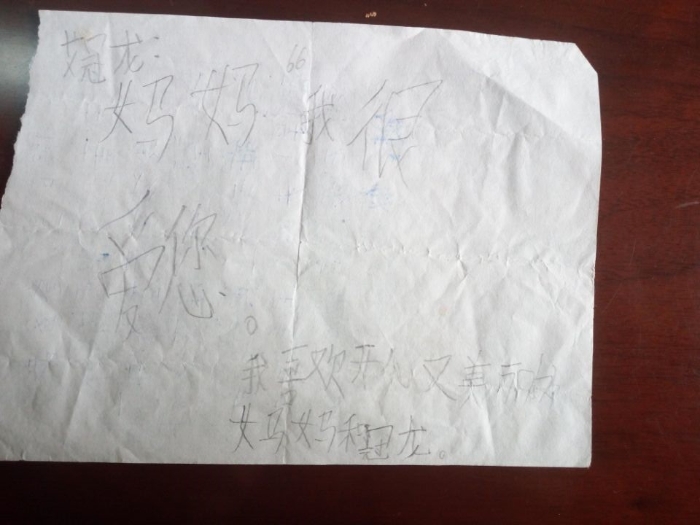 冠龙:
妈妈“我很
爱您。
我喜欢开心又美丽的
妈妈和冠龙。